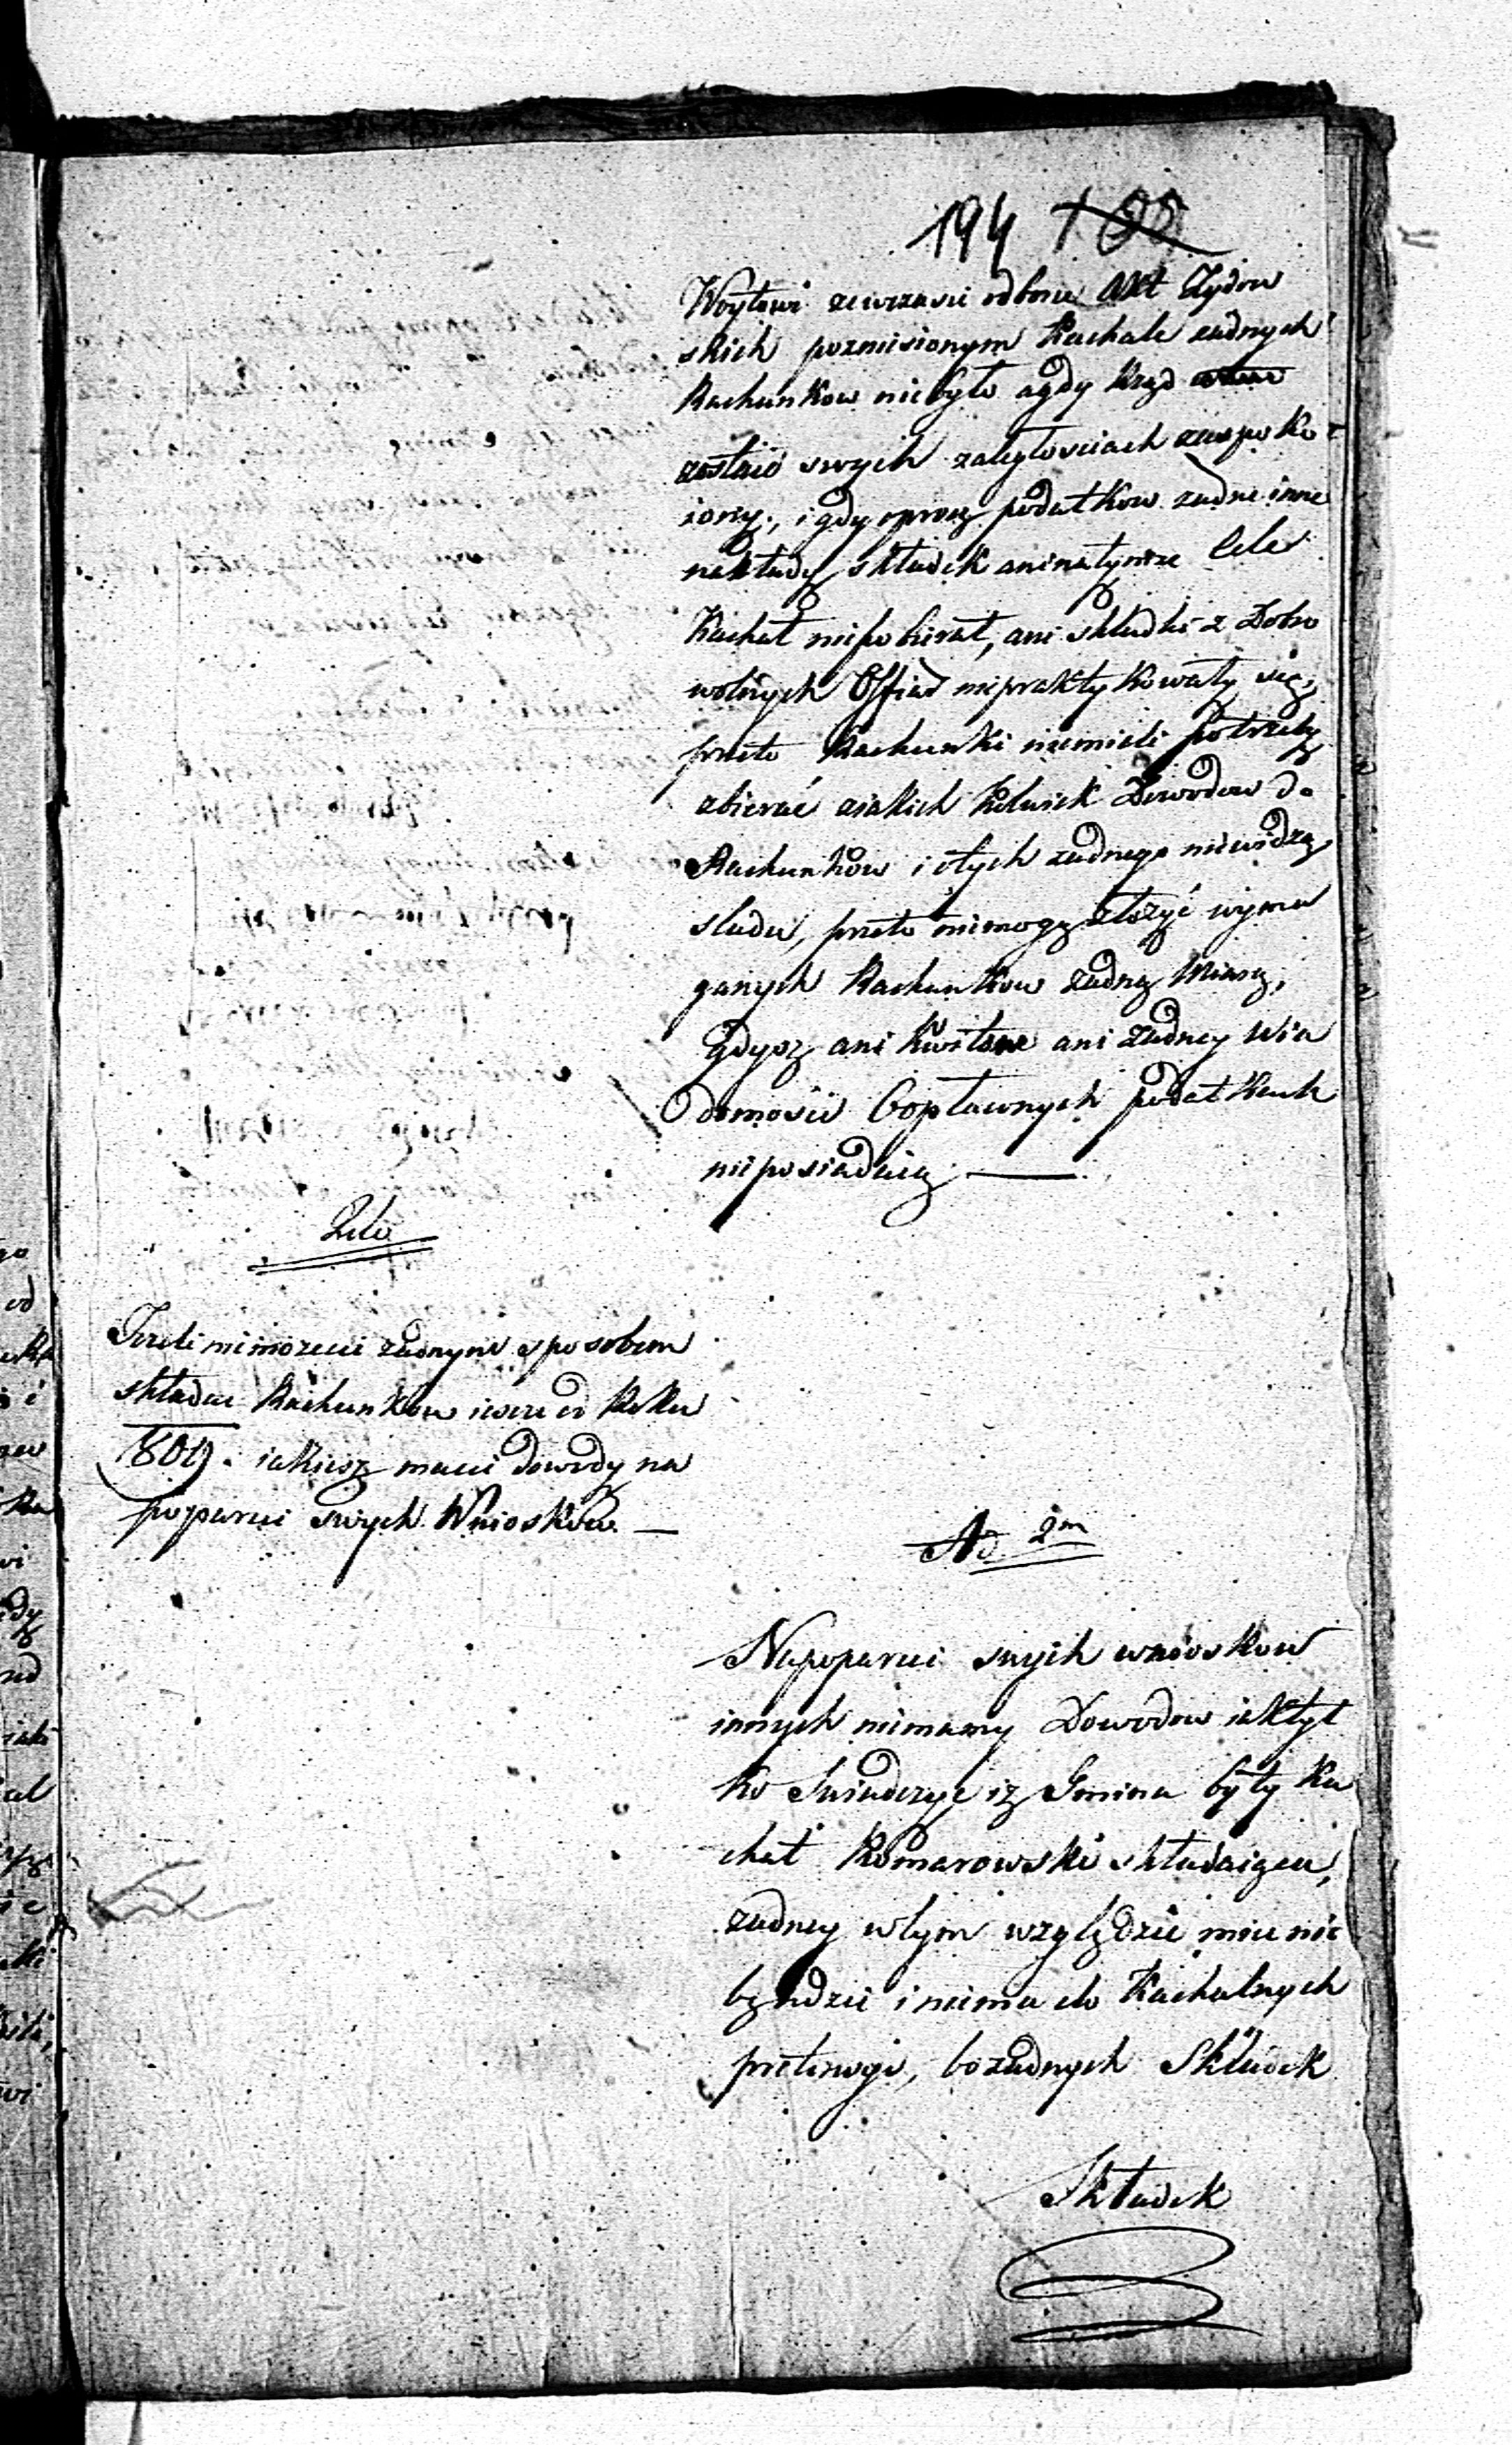 194
Woytowi zawczasu odbone Akt Zydow
skich pozniesionym Kachale zadnych
Rachunkow niebyło agdy Rząd
został swych zaległosciach zaspoko
iony, i gdy oprocz podatkow zadne inne
nakłady składek aninatymze Cele
Kachał niepobierał, ani składki z Dobro
wolnych Offiar niepraktykowały się,
przeto Rachunki niemieli potrzeby
zbierać ziakich kolwiek Dowodow do
Rachunkow i otych zadnego niewidzą
sladu, przeto niemogą złozyć wyma
ganych Rachunkow zadną Miarą,
gdysz ani Kwitow ani zadney Wia
domosci Copławnych podatkach
nieposiadaią
2do
Jezeli niemozecie zadnym sposobem
składac Rachunkow ieszcze od Roku
1809. iakiesz macie dowody na
poparcie swych Wnioskow
Ad 2m
Napoparcie swych wnioskow
innych niemamy Dowodow iaktyl
ko Swiadczyc iz Gmina były Ka
chał Komarowski składaiąca,
zadney wtym względzie miec nie
będzie i niema do Kachalnych
pretensyi, bozadnych Składek
Składek